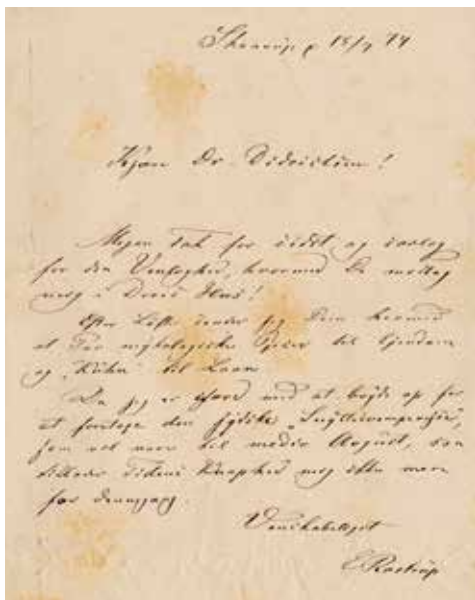 Skaarup p 18/7 74
Kjære Dr. Didrichsen!
Megen Tak for sidst, og isærlig
for den Venlighed, hvormed De modtog
mig i Deres Hus!
Efter Løfte sender jeg Dem hermed
et Par mykologiske til Ejendom
og "Kühn" til Laan
Da jeg er med at bryde op for
at foretage den jydske
som vel varer til medio August, saa
tillader Tidens Knaphed mig ikke mere
for dennegang.
Venskabeligst
E Rostrup